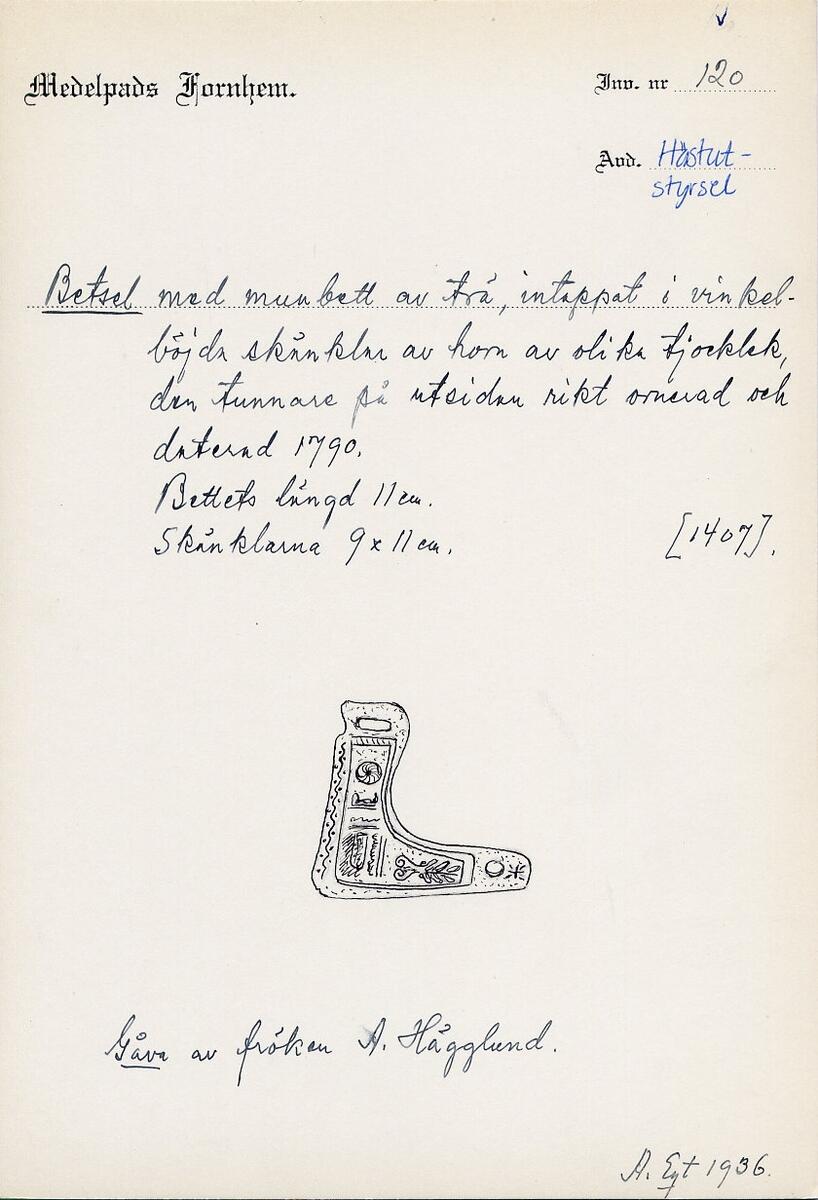 Medelpads Fornhem.
Inv. nr 120
Avd. Hästut-
styrsel
Betsel med munbett av trä, intappat i vinkel-
böjda skänklar av horn av olika tjocklek,
den tunnare på utsidan rikt ornerad och
daterad 1790.
Bettets längd 11 cm.
Skänklarna 9 x 11 cm. [1407].
Gåva av fröken A. Hägglund.
A. Eyt 1936.